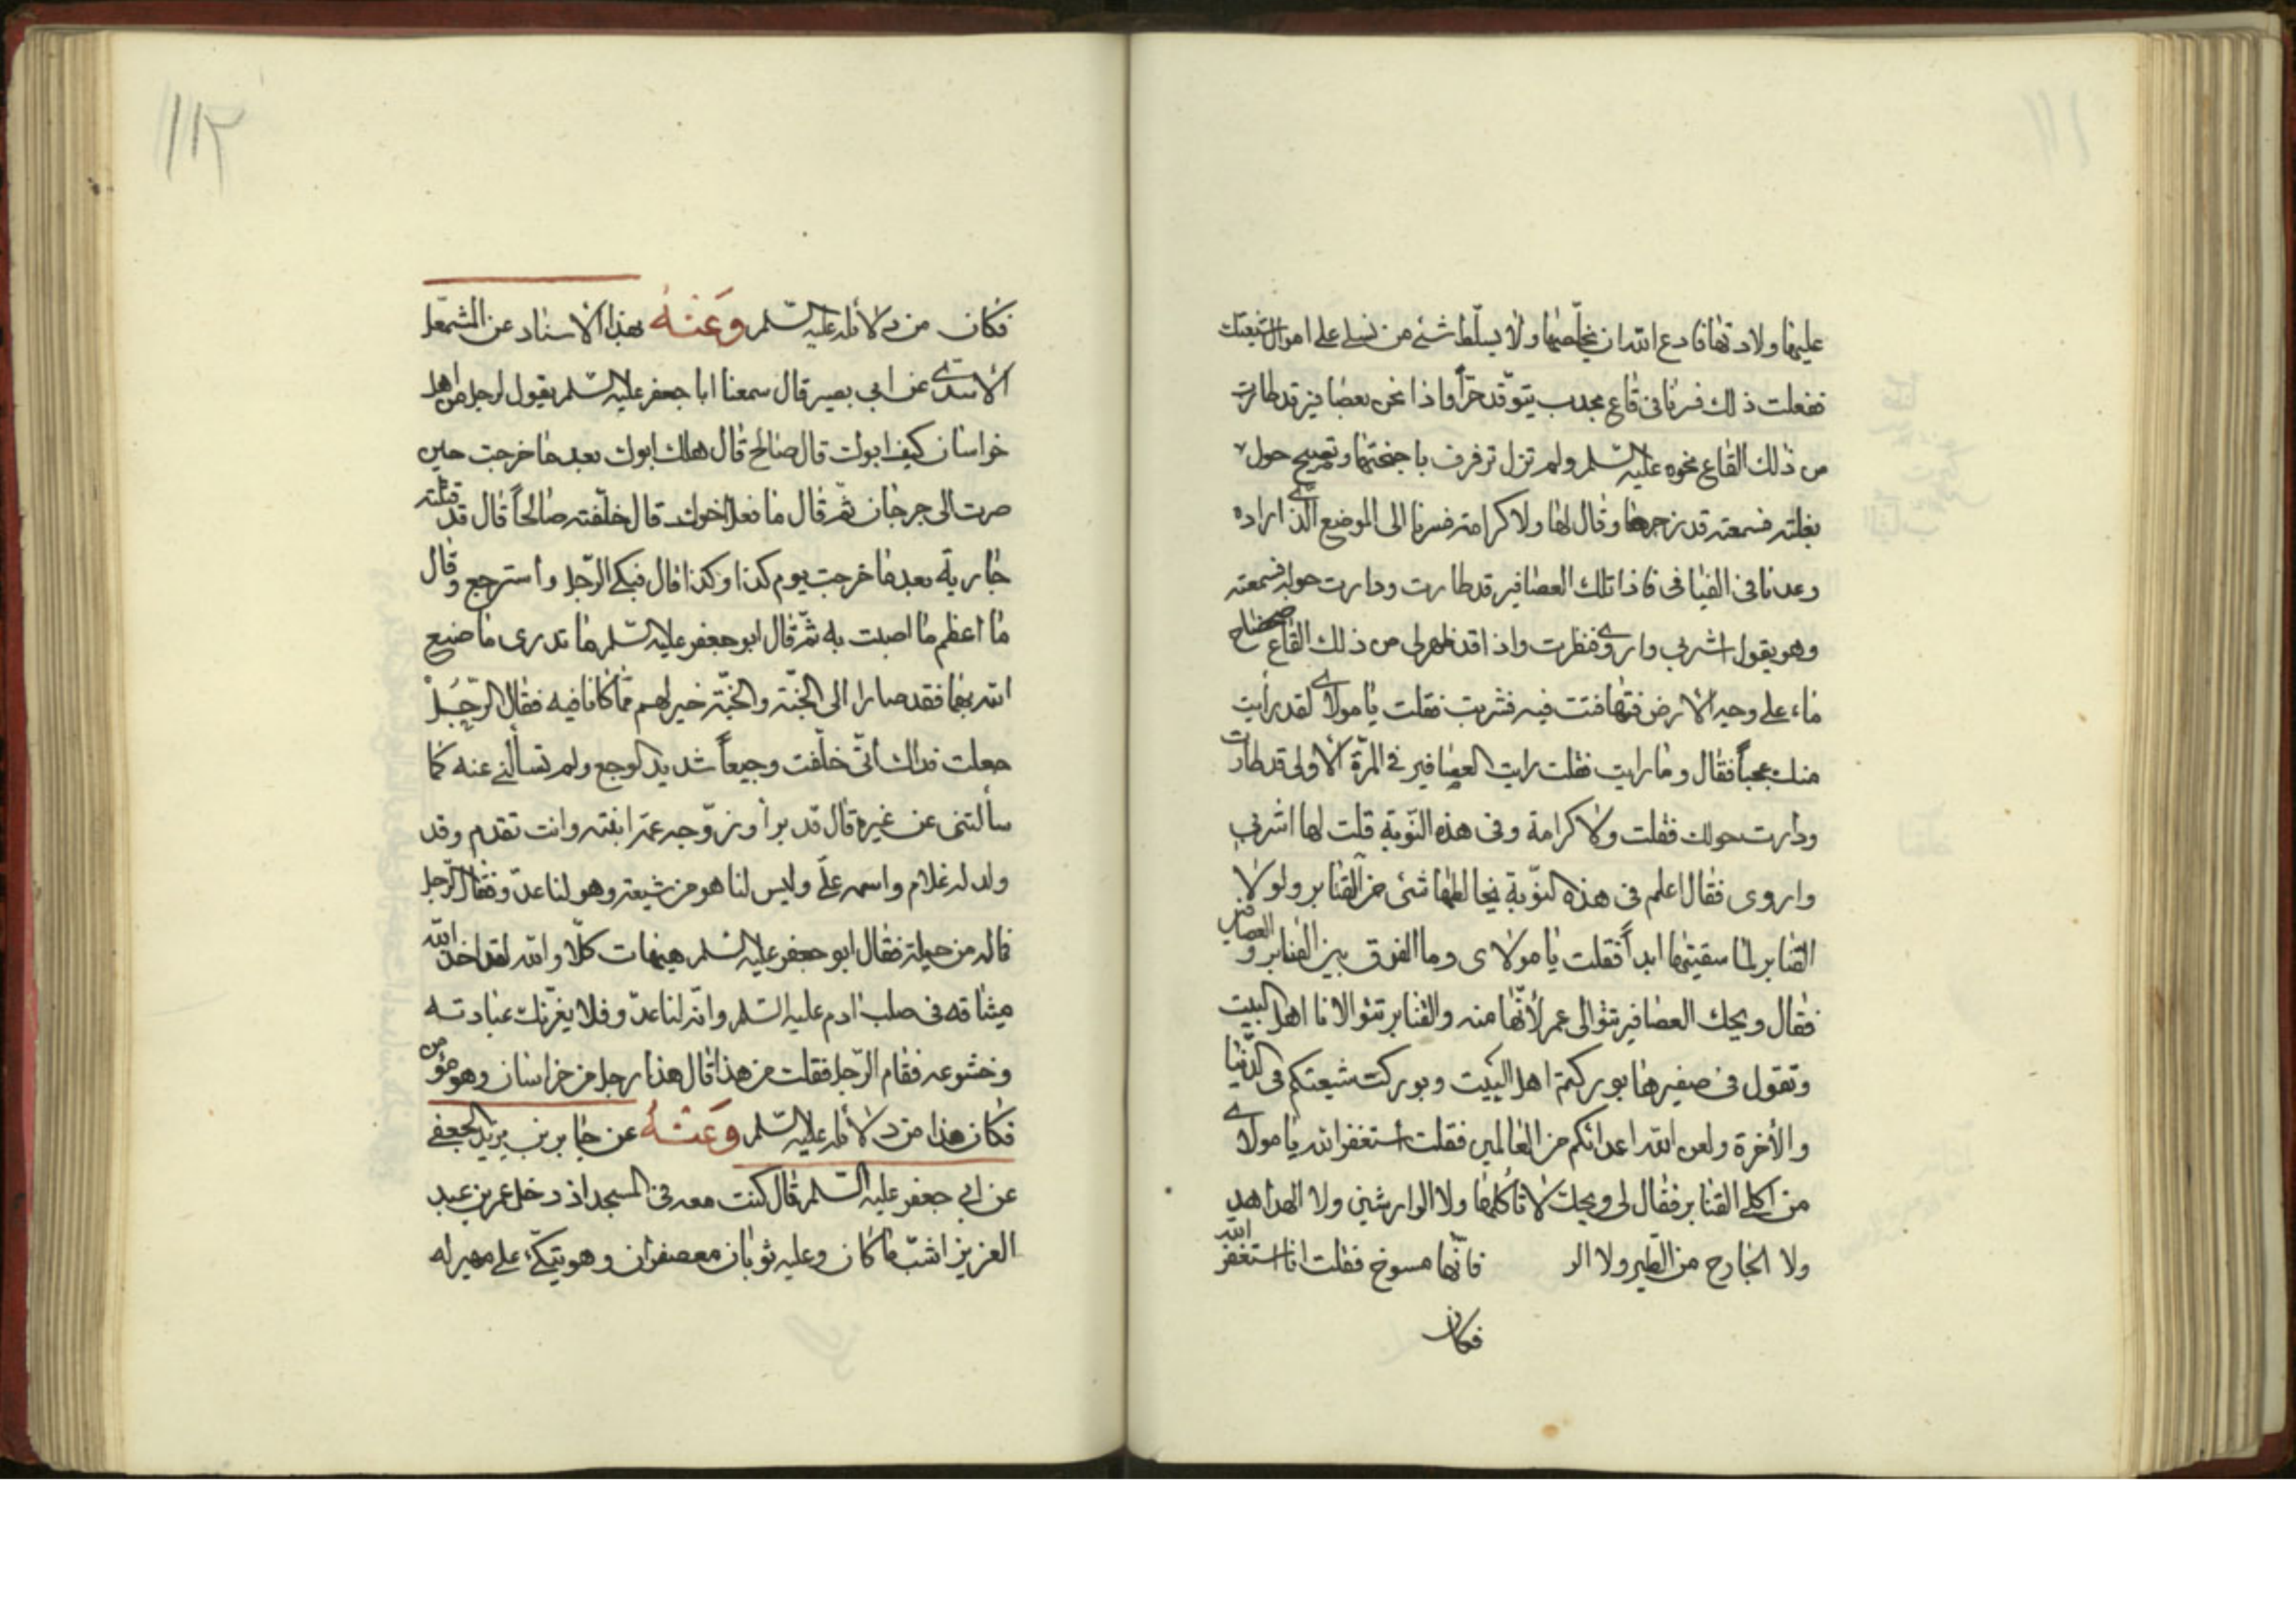 عليها ولادتها فادع الله ان يخلصها ولا يسلط شئ من نسلي على اموال شيعتك
ففعلت ذلك فسرنا فى قاع مجدب يتوقد حرّاً واذا نحن بعصافير قد طارت
من ذلك القاع نحوه عليه السّلم ولم تزل ترفرف باجنحتها وتصيح حول
بغلته فسمعته قد زجرها وقال لها ولا كرامة فسرنا الى الموضع الّذى اراده
وعدنا فى الفيافى فاذا تلك العصافير قد طارت ودارت حوله فسمعته
وهو يقول اشربى واروى فنظرت واذا قد ظهر لى من ذلك القاع ضحضاح
ماء على وجه الارض فتهافتت فيه فشربت فقلت يا مولاى لقد رأيت
منك عجباً فقال وما رايت فقلت رايت العصافير فى المرّة الأولى قد طارت
ودارت حولك فقلت ولا كرامة وفى هذه النّوبة قلت لها اشربى
واروى فقال اعلم فى هذه النّوبة يخالطها شئ من القنابر ولولا
القنابر لما سقيتها ابداً فقلت يا مولاى وما الفرق بين القنابر و العصافير
فقال ويحك العصافير تتوالى عمر لأنّها منه والقنابر تتوالانا اهل البيت
وتقول فى صفيرها بوركتم اهل البيت وبوركت شيعتكم فى الدّنيا
والأخرة ولعن الله اعدائكم من العالمين فقلت استغفر الله يا مولاى
من اكلى القنابر فقال لى ويحك لا تأكلها ولا الوارشين ولا الهداهد
ولا الجارح من الطّير ولا الر فانّها مسوخ فقلت انا استغفر الله
فكان
١١٢
فكان من دلائله عليه السّلم وَعَنْهُ بهذا الاسناد عن الشمعل
الأسدى عن ابى بصير قال سمعنا ابا جعفر عليه السّلم يقول لرجل من اهل
خراسان كيف ابوك قال صالح قال هلك ابوك بعد ما خرجت حين
صرت الى جرجان ثمّ قال ما فعل اخوك قال خلّفته صالحاً قال قد قتلته
جارية بعد ما خرجت يوم كذا وكذا قال فبكى الرّجل واسترجع وقال
ما اعظم ما اصبت به ثمّ قال ابو جعفر عليه السّلم ما تدرى ما صنع
الله بهما فقد صارا الى الجنّة والجنّة خير لهم ممّا كانا فيه فقال الرّجُلْ
جعلت فداك انّى خلّفت وجيعاً شديد الوجع ولم تسألنى عنه كما
سألتنى عن غيره قال قد برأ وزوّجه عمّه ابنته وانت تقدم وقد
ولد له غلام واسمه علّى وليس لنا هو من شيعته وهو لنا عدّو فقال الرّجل
فما له من حيلة فقال ابو جعفر عليه السّلم هيهات كلّا والله لقد اخذ الله
ميثاقه فى صلب ادم عليه السّلم وانّه لنا عدّو فلا يغرّنك عبادته
وخشوعه فقام الرّجل فقلت من هذا قال هذا رجل من خراسان وهو مؤمن
فكان هذا من دلائله عليه السّلم وَعَنْهُ عن جابر بن يزيد الجعفى
عن ابى جعفر عليه السّلم قال كنت معه فى المسجد اذ دخل عمر بن عبد
العزيز اشبّ ما كان وعليه ثوبان معصفران وهو يتّكئ على مهير له